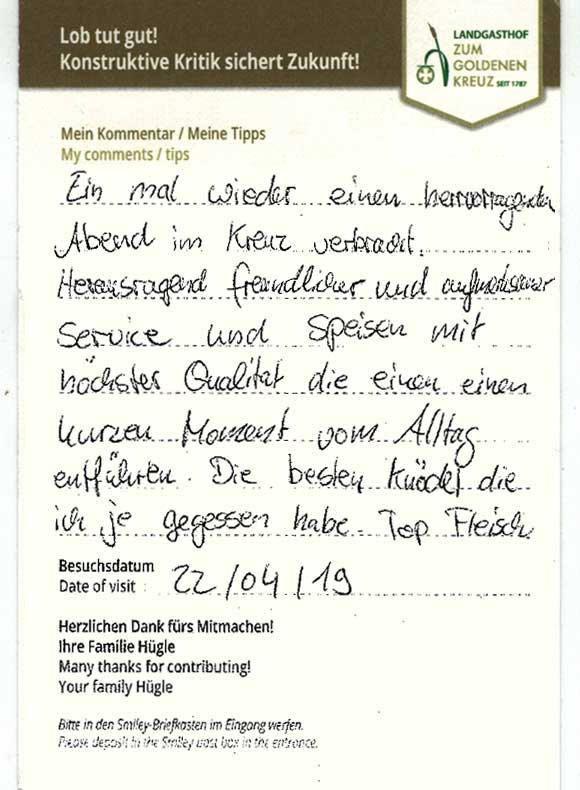 Lob tut gut!
Konstruktive Kritik sichert Zukunft!
LANDGASTHOF
ZUM
GOLDENEN
KREUZ SEIT 1787
Mein Kommentar / Meine Tipps
My comments / tips
Ein mal wieder einen hervorragenden
Abend im Kreuz verbracht.
Herausragend freundlicher und aufmerksamer
Service und Speisen mit
höchster Qualität die einen einen
kurzen Moment vom Alltag
entführen. Die besten Knödel die
ich je gegessen habe. Top Fleisch
Besuchsdatum
Date of visit : 22/04/19
Herzlichen Dank fürs Mitmachen!
Ihre Familie Hügle
Many thanks for contributing!
Your family Hügle
Bitte in den Smiley-Briefkasten im Eingang werfen.
Please deposit in the Smiley post box in the entrance.